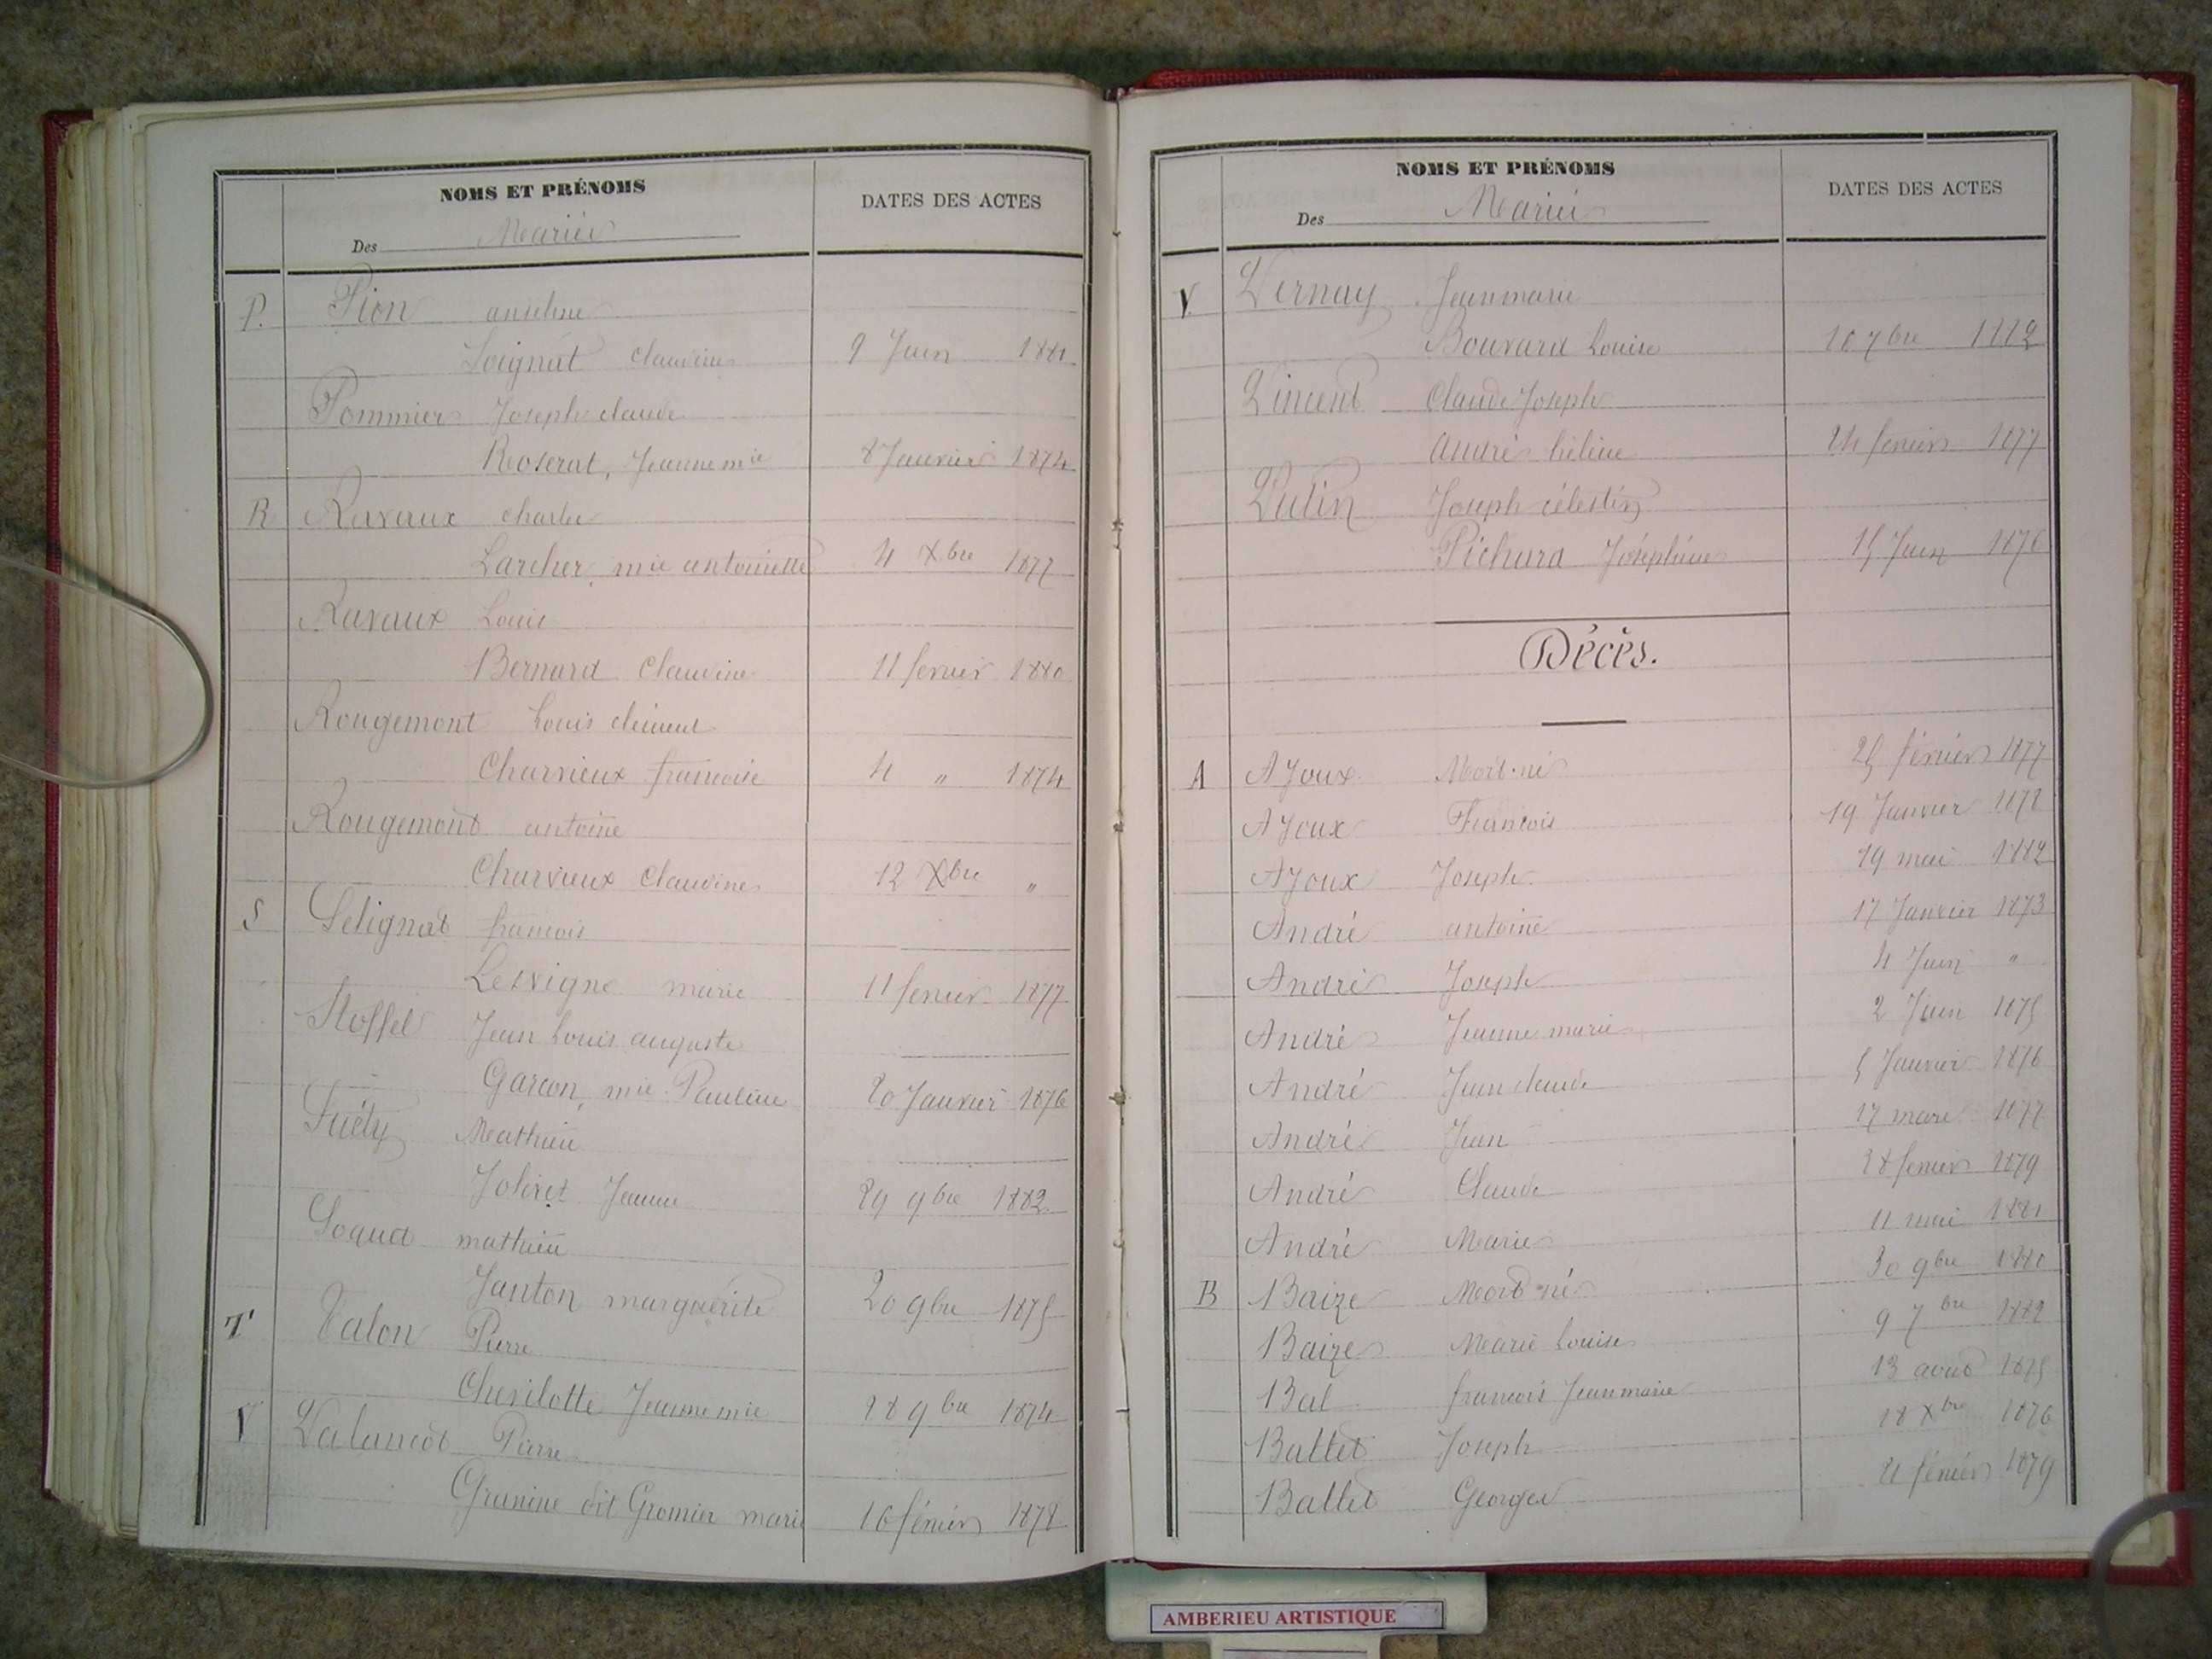 NOMS ET PRÉNOMS
DATES DES ACTES
Des Mariés
P. Pion anselme
Soignat claudine 9 Juin 1881
Pommier Joseph claude
Roserat, Jeanne mie 8 Janvier 1874
R Ravaux charles
Larcher, mie antoinette 4 Xbre 1877
Ravaux Louis
Bernard Claudine 11 fevrier 1880
Rougemont Louis clément
Charvieux francoise 4 " 1874
Rougemont antoine
Charvieux Claudine 12 Xbre "
S Selignat francois
Lesvigne marie 11 fevrier 1877
Stoffel Jean Louis auguste
Garcon, mie Pauline 20 Janvier 1876
Suély Mathieu
Jolivet Jeanne 29 9bre 1882
Soquet mathieu
Janton marguerite 20 9bre 1875
T Talon Pierre
Cherilotte Jeanne mie 28 9bre 1874
V Valancot Pierre
dit Gromier marie 16 février 1878
NOMS ET PRÉNOMS
DATES DES ACTES
Des Mariés
V Vernay Jean marie
Bouvard Louise 7bre 1882
Vincent Claude Joseph
andré hélène 24 fevrier 1877
Joseph célestin
Pichard Joséphine 15 Juin 1876
Décès.
A AJoux Mort-né 25 février 1877
AJoux Francois 19 Janvier 1878
AJoux Joseph 19 mai 1882
André antoine 17 Janvier 1873
André Joseph 4 Juin "
André Jeanne marie 2 Juin 1875
André Jean claude 5 Janvier 1876
André Jean 17 mars 1877
André Claude 28 fevrier 1879
André Marie 11 mai 1881
B Baize Mort-né 30 9bre 1880
Baize Marie Louise 9 7bre 1882
Bal francois Jean marie 13 aout 1875
Ballet Joseph 18 Xbre 1876
Ballet Georges 21 février 1879
AMBERIEU ARTISTIQUE